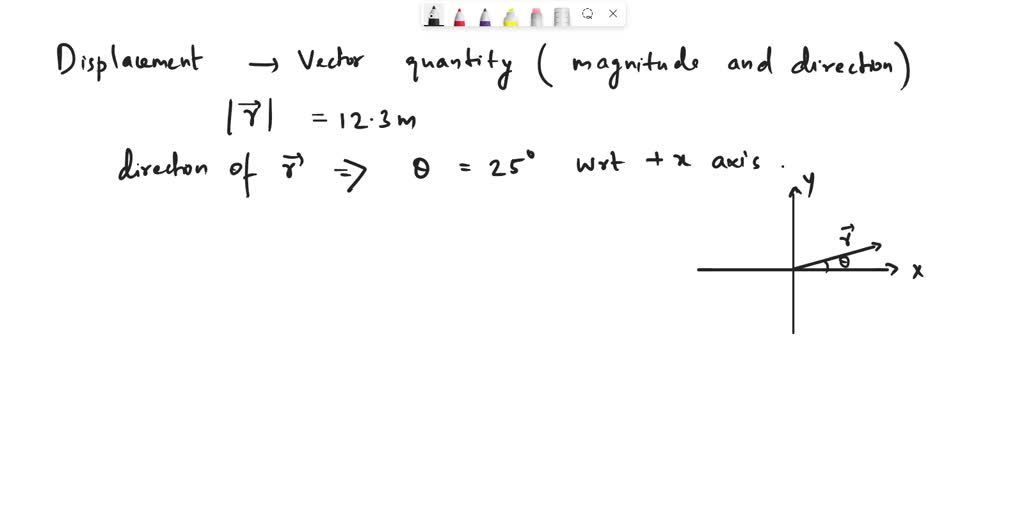 Displacement → Vector quantity ( magnitude and direction)
|r⃗| = 12.3m
direction of r⃗ ⇒ θ = 25° wrt +x axis.
y
r⃗
θ
x